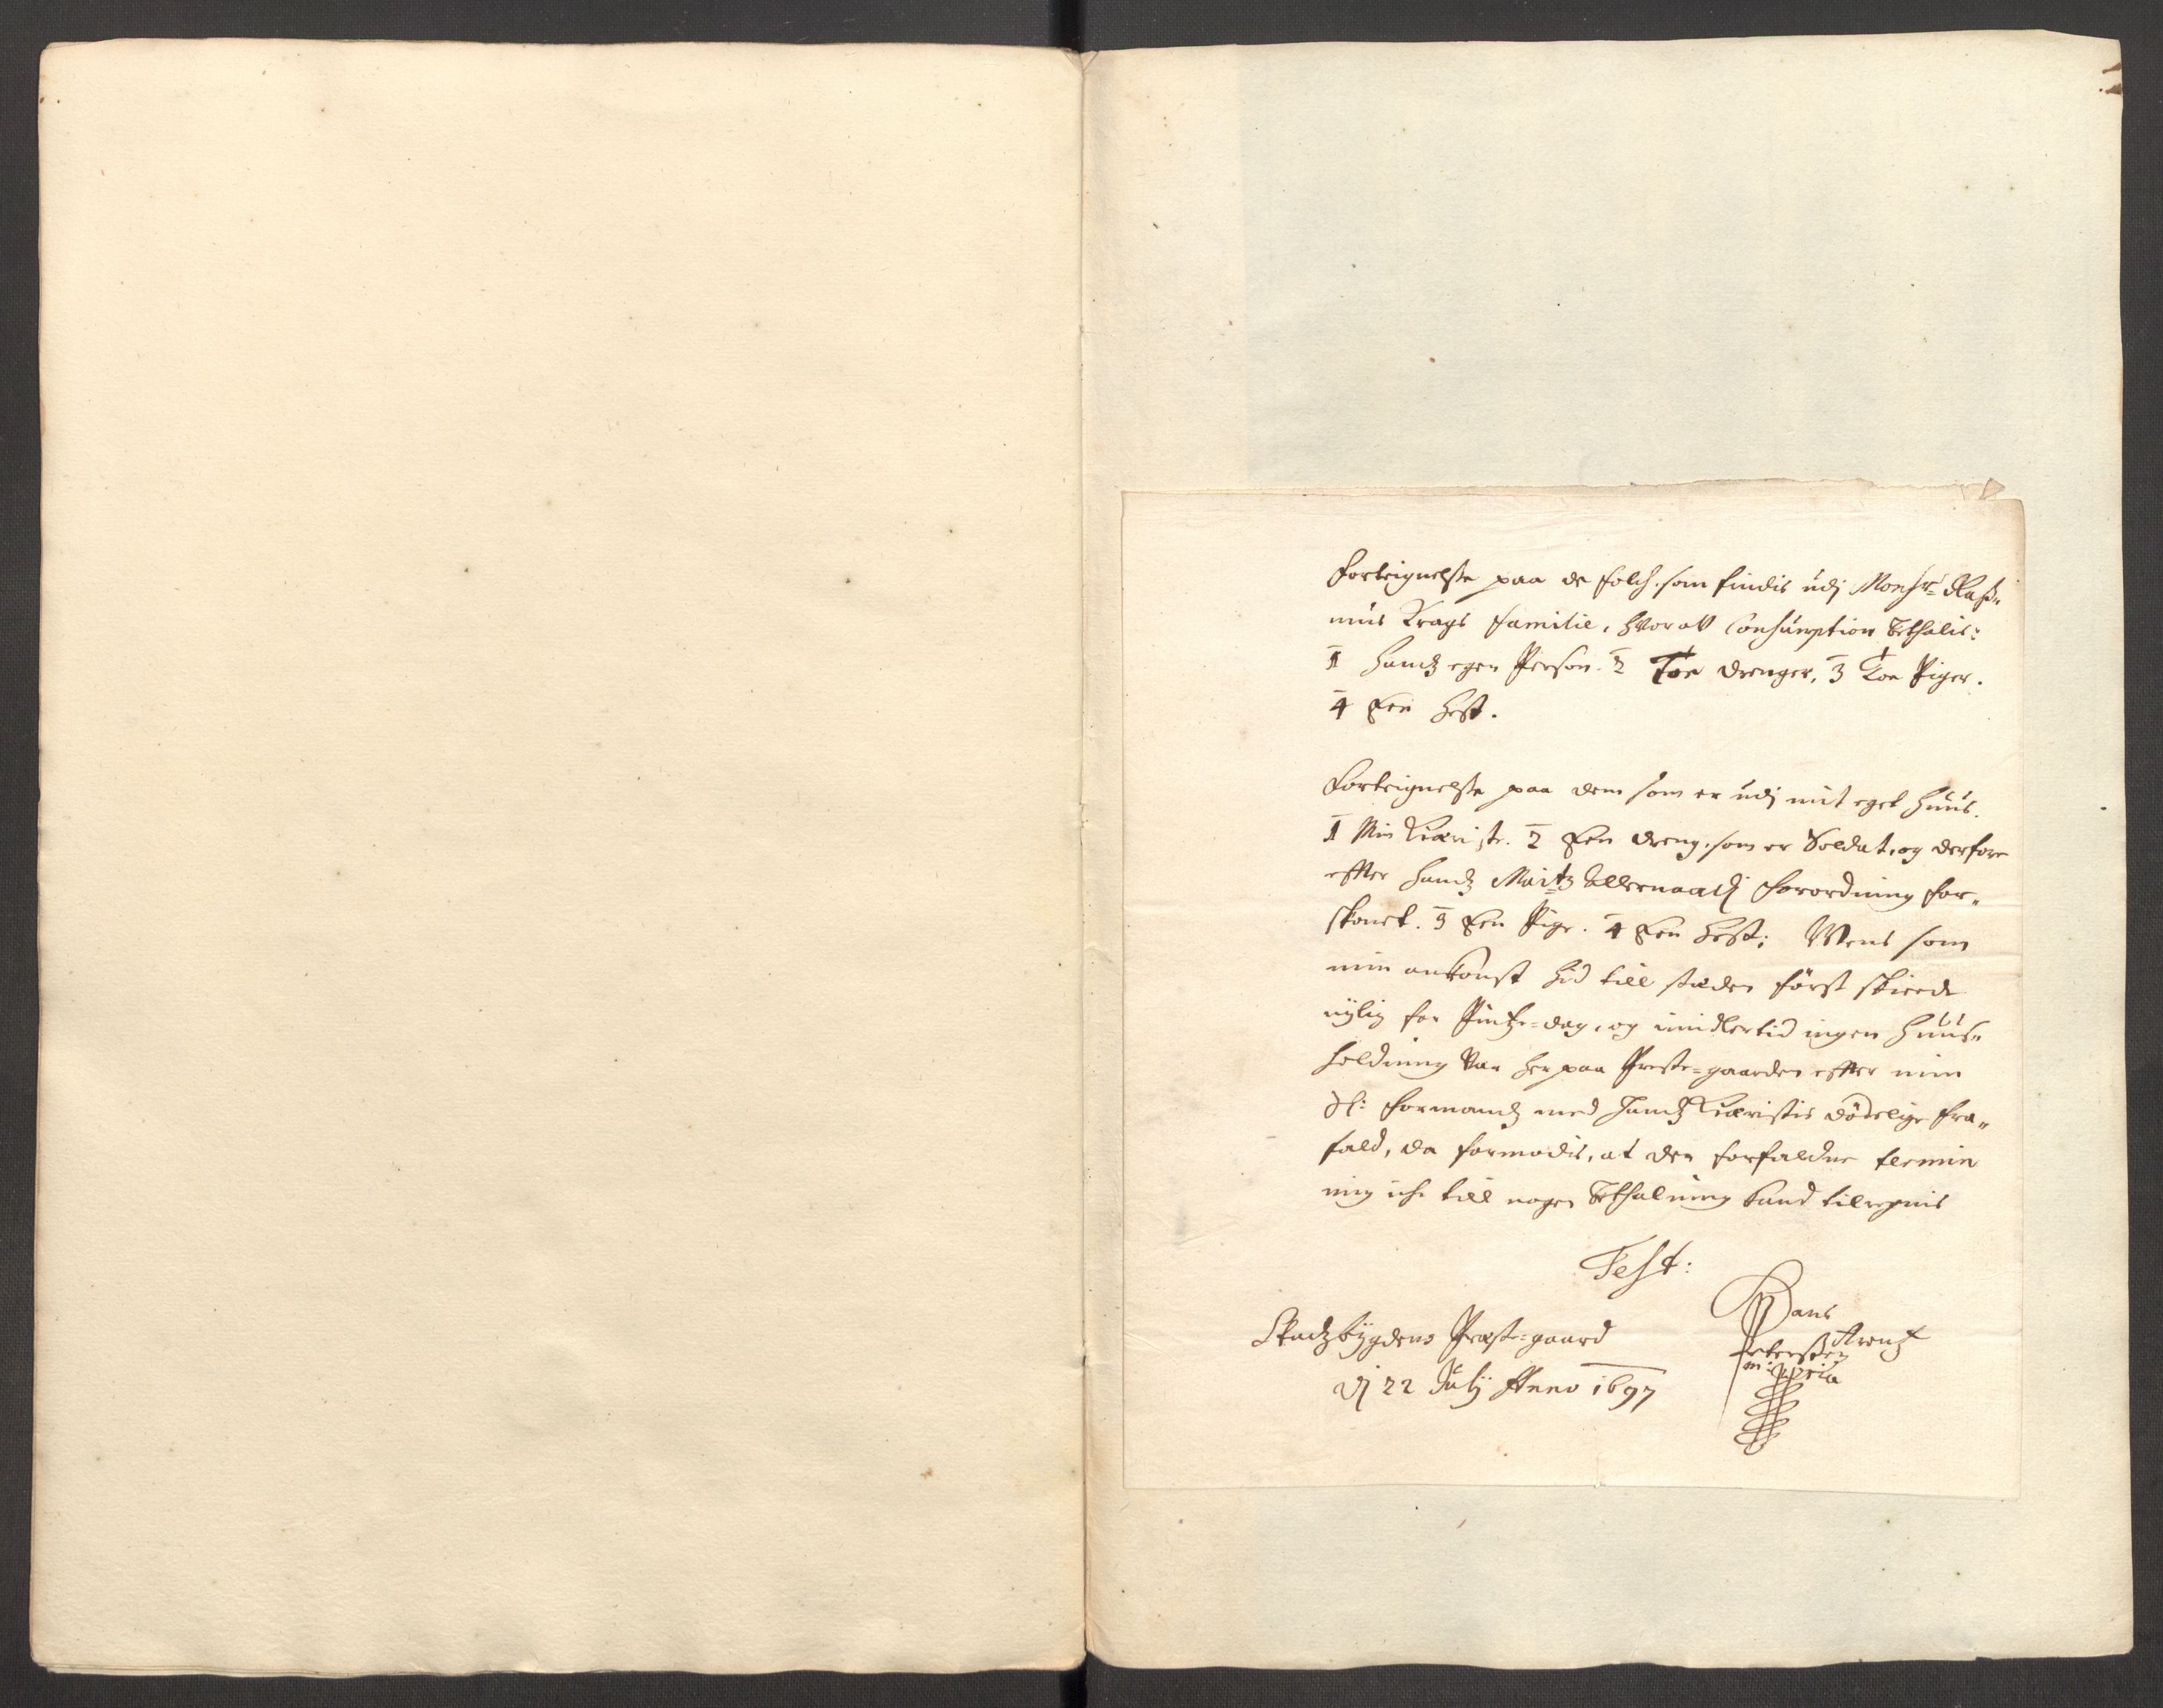 Forteignelße paa de folch, som findis udj Monsr= Raß„
mus Krags familie, hvor aff Consumption bethalis:
1 Handz egen Person. 2 Toe drenger, 3 Toe Piger.
4 Een hest.
Forteignelße paa dem som er udj mit eget Huus.
1 Min Kieriste. 2 Een dreng, som er Soldat, og derfore
effter Handz Maitz allernaadi forordning for„
skonet. 3 Een Pige. 4 Een hest; Mens som
min ankomst hid till stæden först skiede
nylig for Pintze=dag, og imidlertid ingen Huus„
holdning var her paa Preste=gaarden effter min
Sl: formandz med Handz Kieristis dödelige fra„
fald, da formodis, at den forfaldne termin
mig iche till nogen bethalning kand tilregnis
Test:
Stadzbygdens Præste=gaard
dj 22 Julij Anno 1697
Hans
Petersßen Arentz
m: ppria